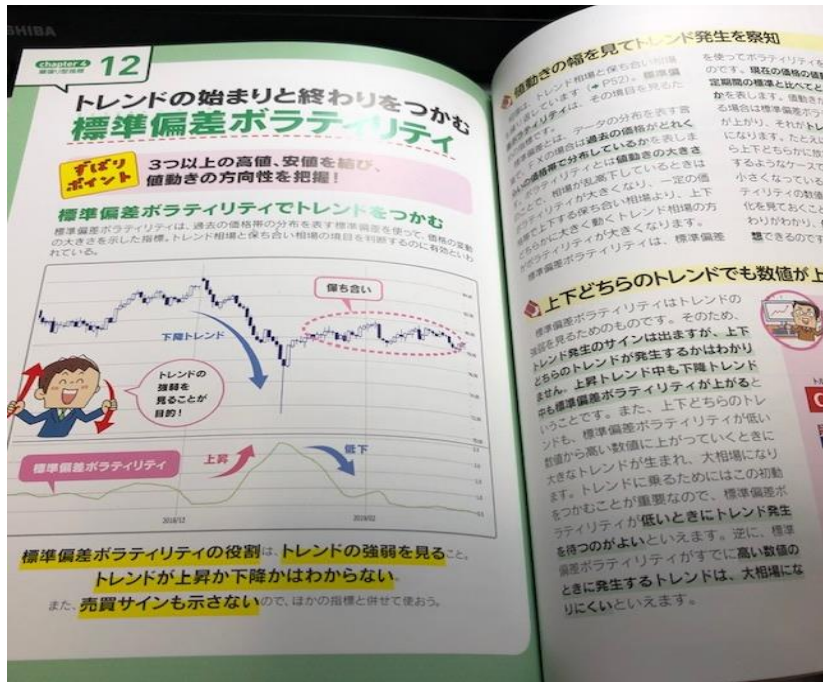 SHIBA
chapter 4
12
トレンドの始まりと終わりをつかむ
標準偏差ボラティリティ
ずばり
ポイント
3つ以上の高値、安値を結び、
値動きの方向性を把握!
標準偏差ボラティリティでトレンドをつかむ
標準偏差ボラティリティは、過去の価格帯の分布を表す標準偏差を使って、価格の変動
の大きさを示した指標。トレンド相場と保ち合い相場の境目を判断するのに有効といわ
れている。
保ち合い
下降トレンド
トレンドの
強弱を
見ることが
目的!
標準偏差ボラティリティ
上昇
低下
2018/12
2019/02
標準偏差ボラティリティの役割は、トレンドの強弱を見ること。
トレンドが上昇か下降かはわからない。
また、売買サインも示さないので、ほかの指標と併せて使おう。
値動きの幅を見てトレンド発生を察知
は、トレンド相場と保ち合い相場
を繰り返しています(→P52)。標準偏
差ボラティリティは、その境目を見るた
めの指標です。
標準偏差とは、データの分布を表す言
FXの場合は過去の価格がどれく
らいの価格帯で分布しているかを表しま
ボラティリティとは値動きの大きさ
のことで、相場が乱高下しているときは
ボラティリティが大きくなり、一定の価
格で上下する保ち合い相場より、上下
どちらかに大きく動くトレンド相場の方
がボラティリティが大きくなります。
標準偏差ボラティリティは、標準偏差
を使ってボラティリティを
のです。現在の価格の値動
定期間の標準と比べてど
かを表します。値動きが
る場合は標準偏差ボラ
が上がり、それがトレ
になります。たとえば
ら上下どちらかに放
するようなケースで
小さくなっている
ティリティの数値
化を見ておくこと
わりがわかり、
想できるのです
上下どちらのトレンドでも数値が上
標準偏差ボラティリティはトレンドの
強弱を見るためのものです。そのため、
トレンド発生のサインは出ますが、上下
どちらのトレンドが発生するかはわかり
ません。上昇トレンド中も下降トレンド
中も標準偏差ボラティリティが上がると
いうことです。また、上下どちらのトレ
ンドも、標準偏差ボラティリティが低い
数値から高い数値に上がっていくときに
大きなトレンドが生まれ、大相場になり
ます。トレンドに乗るためにはこの初動
をつかむことが重要なので、標準偏差ボ
ラティリティが低いときにトレンド発生
を待つのがよいといえます。逆に、標準
偏差ボラティリティがすでに高い数値の
ときに発生するトレンドは、大相場にな
りにくいといえます。